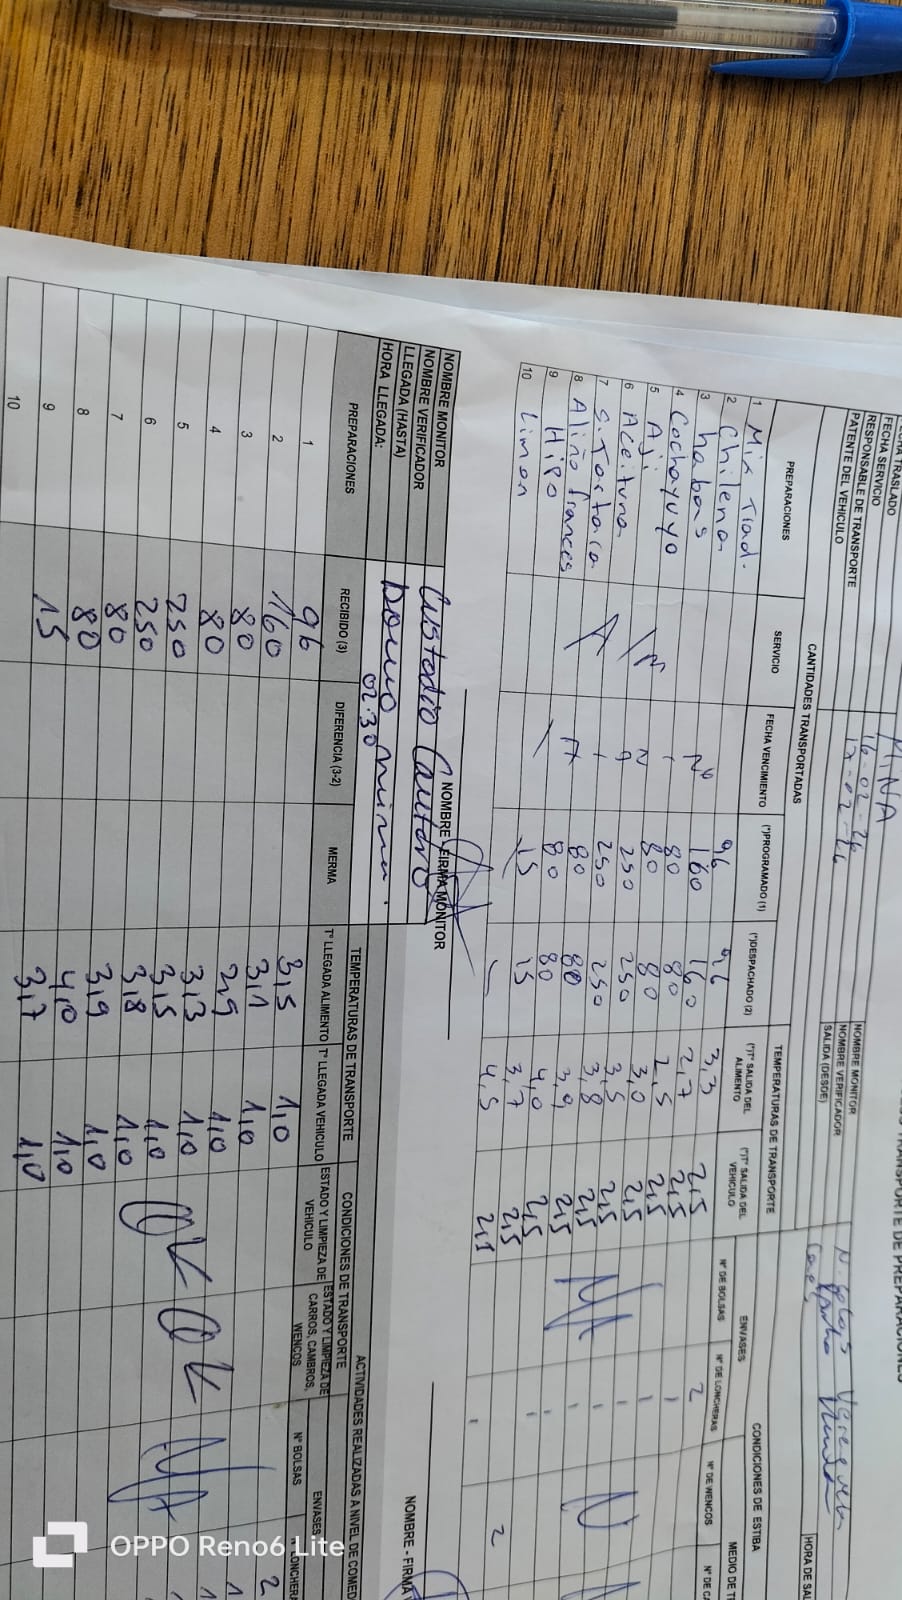 TRANSPORTE DE PREPARACIONES
FECHA TRASLADO MINA
FECHA SERVICIO 16-02-26
RESPONSABLE DE TRANSPORTE
PATENTE DEL VEHICULO
NOMBRE MONITOR
NOMBRE VERIFICADOR
SALIDA (DESDE)
HORA DE SAL
CANTIDADES TRANSPORTADAS TEMPERATURAS DE TRANSPORTE CONDICIONES DE ESTIBA
ENVASES MEDIO DE T
PREPARACIONES SERVICIO FECHA VENCIMIENTO (*)PROGRAMADO (1) (*)DESPACHADO (2) (*)T° SALIDA DEL ALIMENTO (*)T° SALIDA DEL VEHICULO N° DE BOLSAS N° DE LONCHERAS N° DE WENCOS N° DE CA
1 Mix Trad. 96 96 3,3 2,5 2
2 Chilena 160 160 2,7 2,5 1
3 habas 80 80 2,5 2,5 1
4 Cochayuyo 80 80 3,0 2,5 1
5 Aji 250 250 3,5 2,5 1
6 Aceituna 250 250 3,8 2,5 1
7 S. Tartara 80 80 3,9 2,5
8 Aliño frances 80 80 4,0 2,5
9 Hipo 15 15 3,7 2,5
10 Limon 4,5 2,5
N/A
NOMBRE - FIRMA MONITOR
NOMBRE - FIRMA
NOMBRE MONITOR
NOMBRE VERIFICADOR Custodio Cautaro
LLEGADA (HASTA) Domo mina.
HORA LLEGADA: 02:30
TEMPERATURAS DE TRANSPORTE CONDICIONES DE TRANSPORTE ACTIVIDADES REALIZADAS A NIVEL DE COMED
ENVASES
PREPARACIONES RECIBIDO (3) DIFERENCIA (3-2) MERMA T° LLEGADA ALIMENTO T° LLEGADA VEHICULO ESTADO Y LIMPIEZA DE VEHICULO ESTADO Y LIMPIEZA DE CARROS, CAMBROS, WENCOS N° BOLSAS N° LONCHERA
1 96 3,5 1,0 2
2 160 3,1 1,0 1
3 80 2,9 1,0 1
4 80 3,3 1,0
5 250 3,5 1,0
6 250 3,8 1,0
7 80 3,9 1,0
8 80 4,0 1,0
9 15 3,7 1,0
10
OK OK N/A
OPPO Reno6 Lite